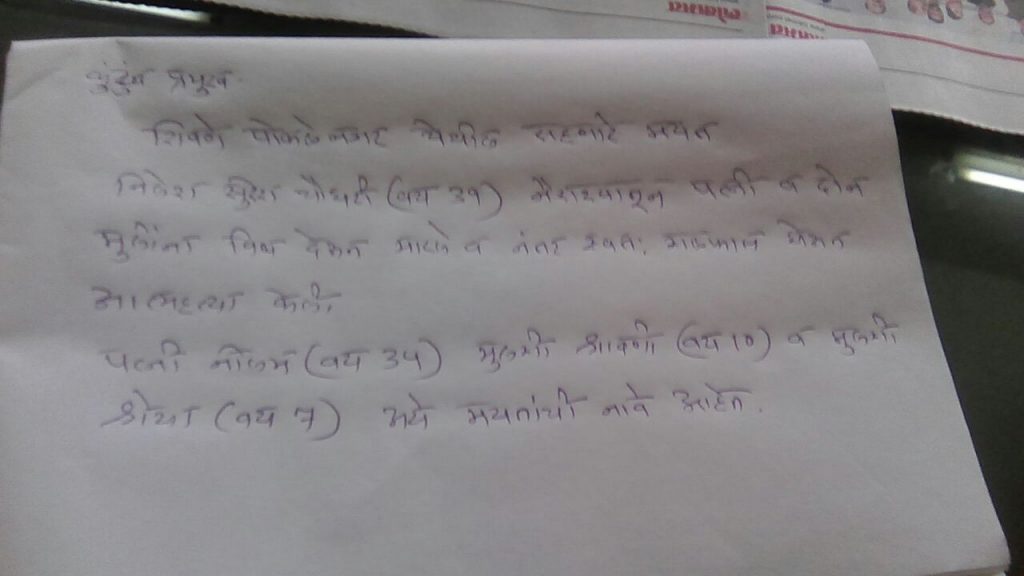 लोकमत
कुटुंब प्रमुख
शिवणे येथील राहणारे मयत
निलेश सुरेश चौधरी (वय 39) नैराश्यातून पत्नी व दोन
मुलींना विष देऊन मारले व नंतर स्वतः गळफास घेऊन
आत्महत्या केली
पत्नी नीलम (वय 34) मुलगी श्रावणी (वय 10) व मुलगी
श्रेया (वय 7) असे मयतांची नावे आहेत.